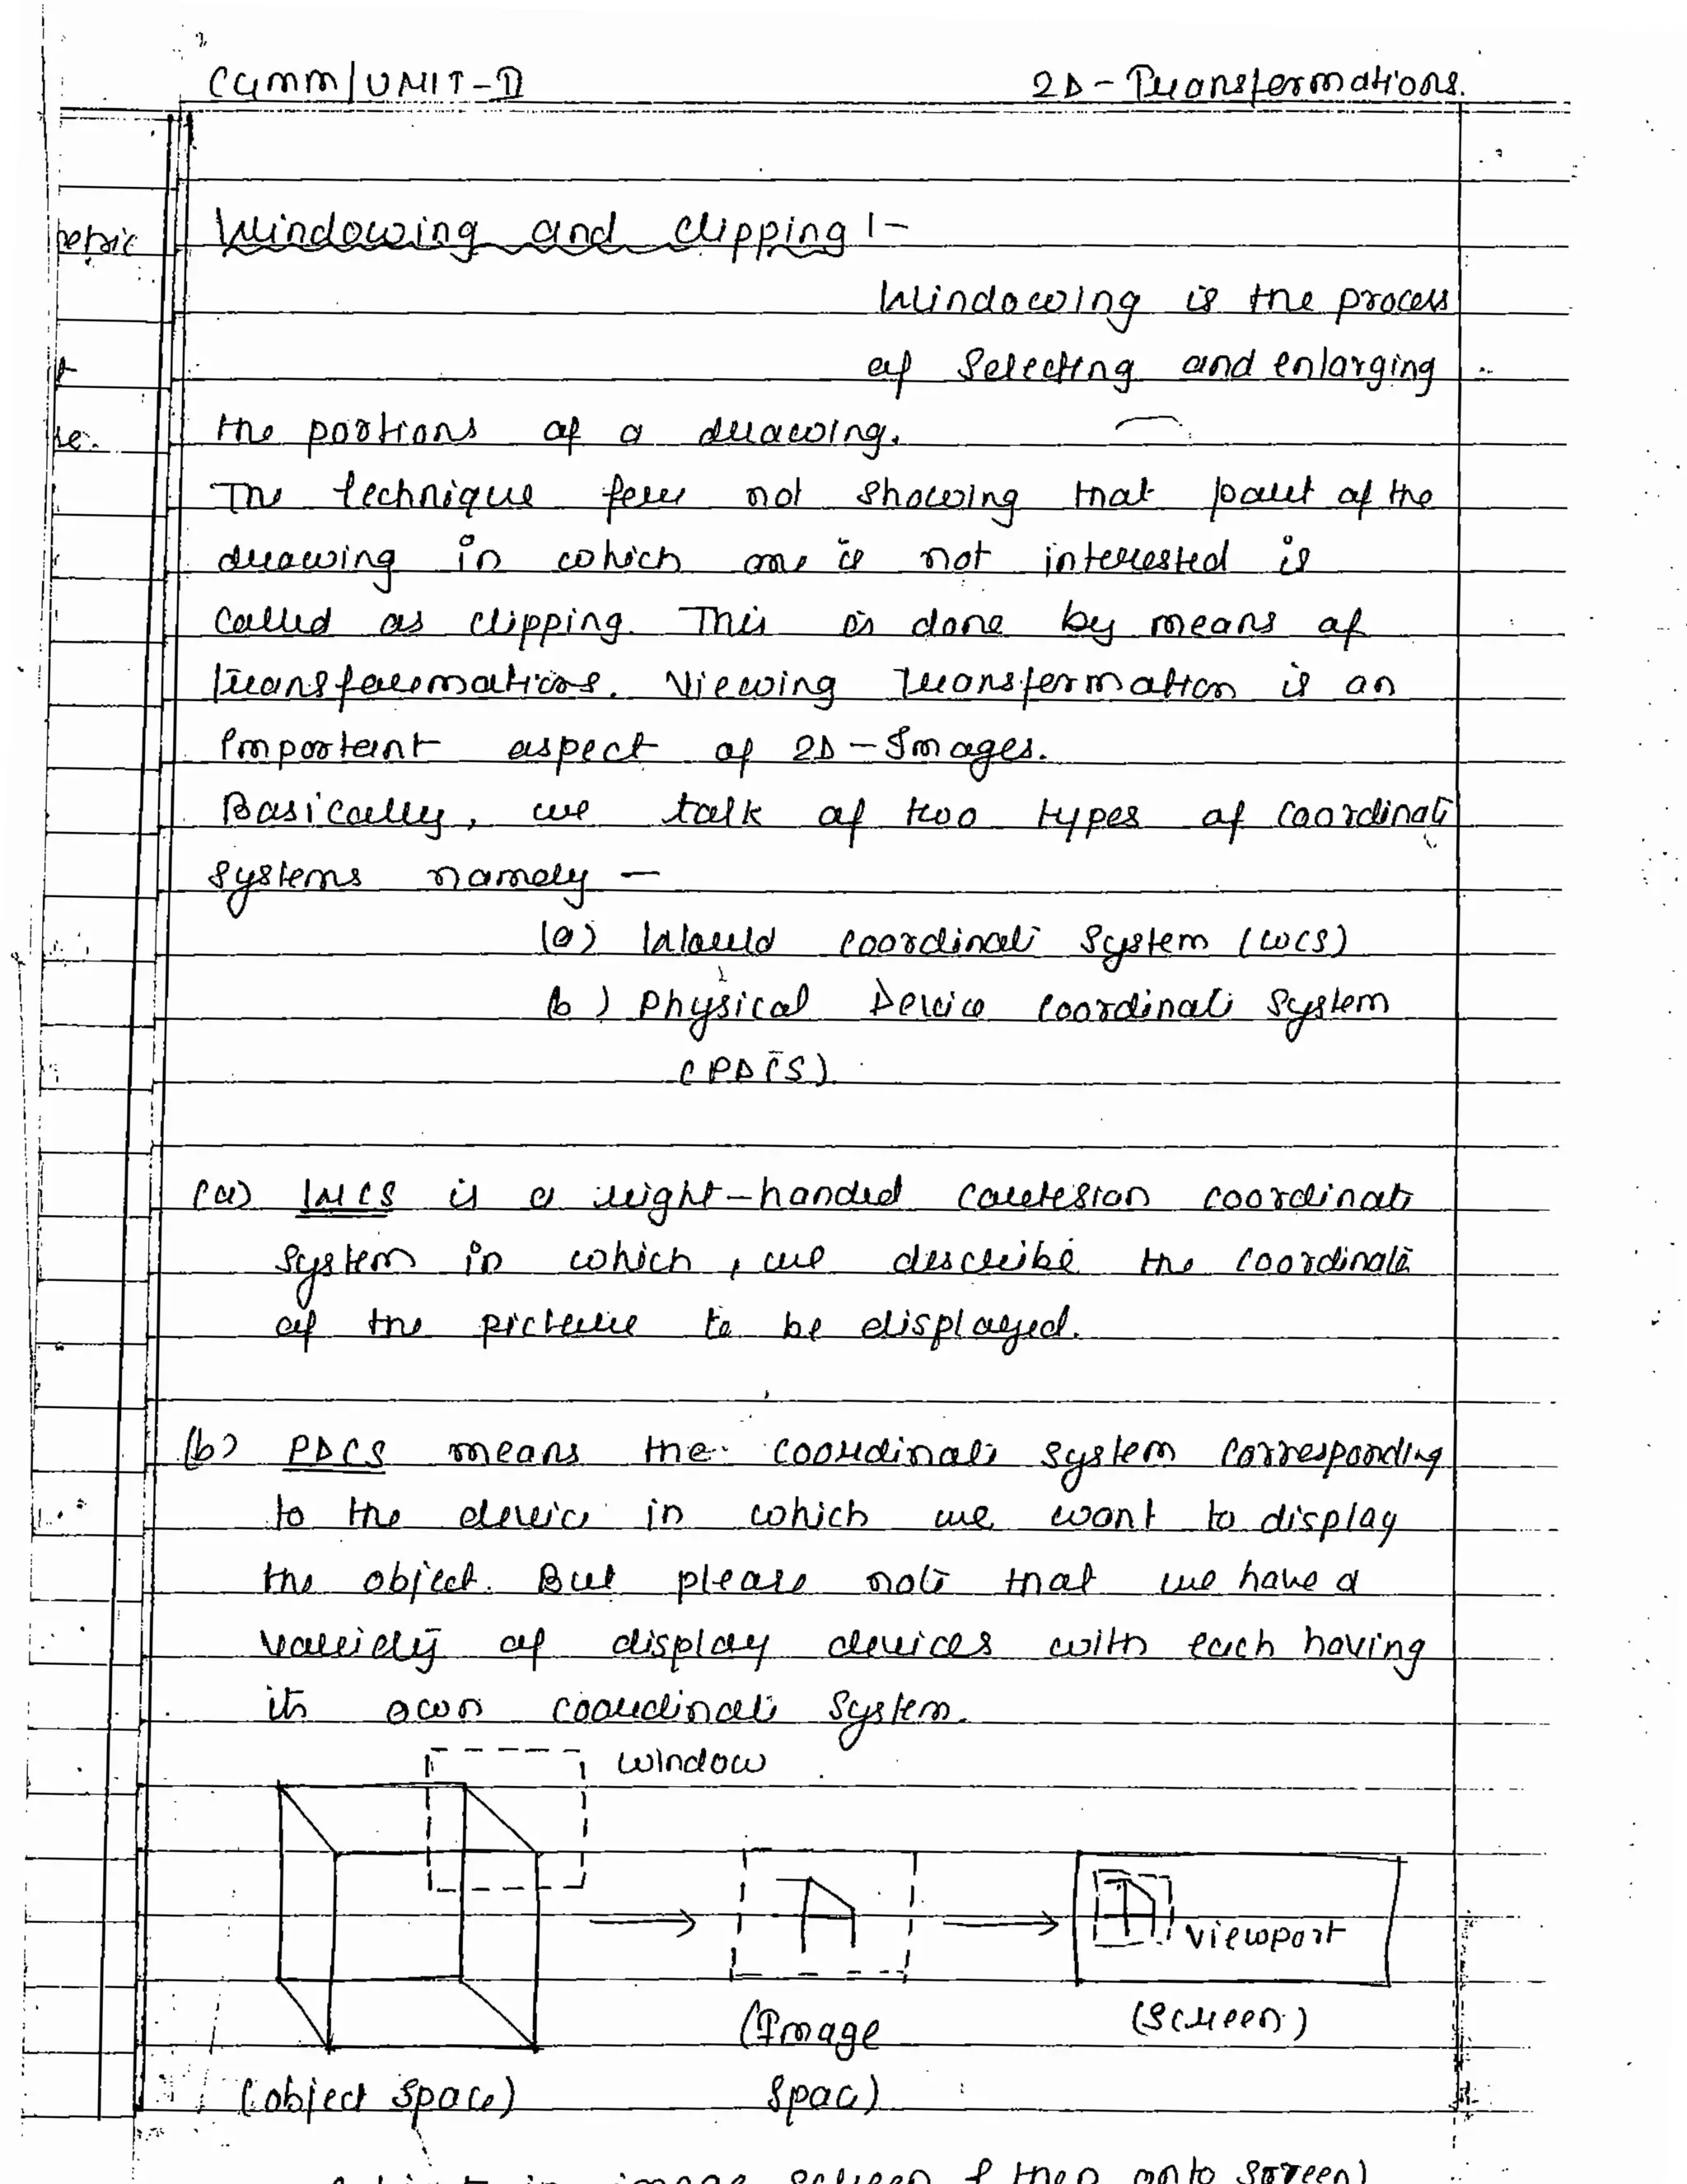 CGMM/UNIT-II 2D-Transformations.
Windowing and Clipping :-
Windowing is the process
of Selecting and enlarging
the portions of a drawing.
The technique for not showing that part of the
drawing in which one is not interested is
called as clipping. This is done by means of
transformations. Viewing Transformation is an
Important aspect of 2D-Images.
Basically, we talk of two types of coordinate
systems namely —
(a) World coordinate System (WCS)
(b) Physical Device coordinate System
(PDCS).
(a) WCS is a right-handed cartesian coordinate
system in which, we describe the coordinate
of the picture to be displayed.
(b) PDCS means the coordinate system corresponding
to the device in which we want to display
the object. But please note that we have a
variety of display devices with each having
its own coordinate System.
window
viewport
(Image
Space)
(Screen)
(object Space)
in image screen & then onto screen)